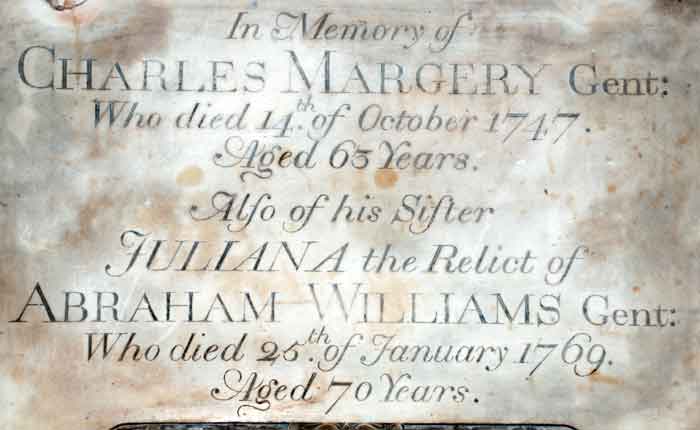 In Memory of
CHARLES MARGERY Gent:
Who died 14.th of October 1747.
Aged 63 Years.
Alſo of his Siſter
JULIANA the Relict of
ABRAHAM WILLIAMS Gent:
Who died 25.th of January 1769.
Aged 70 Years.